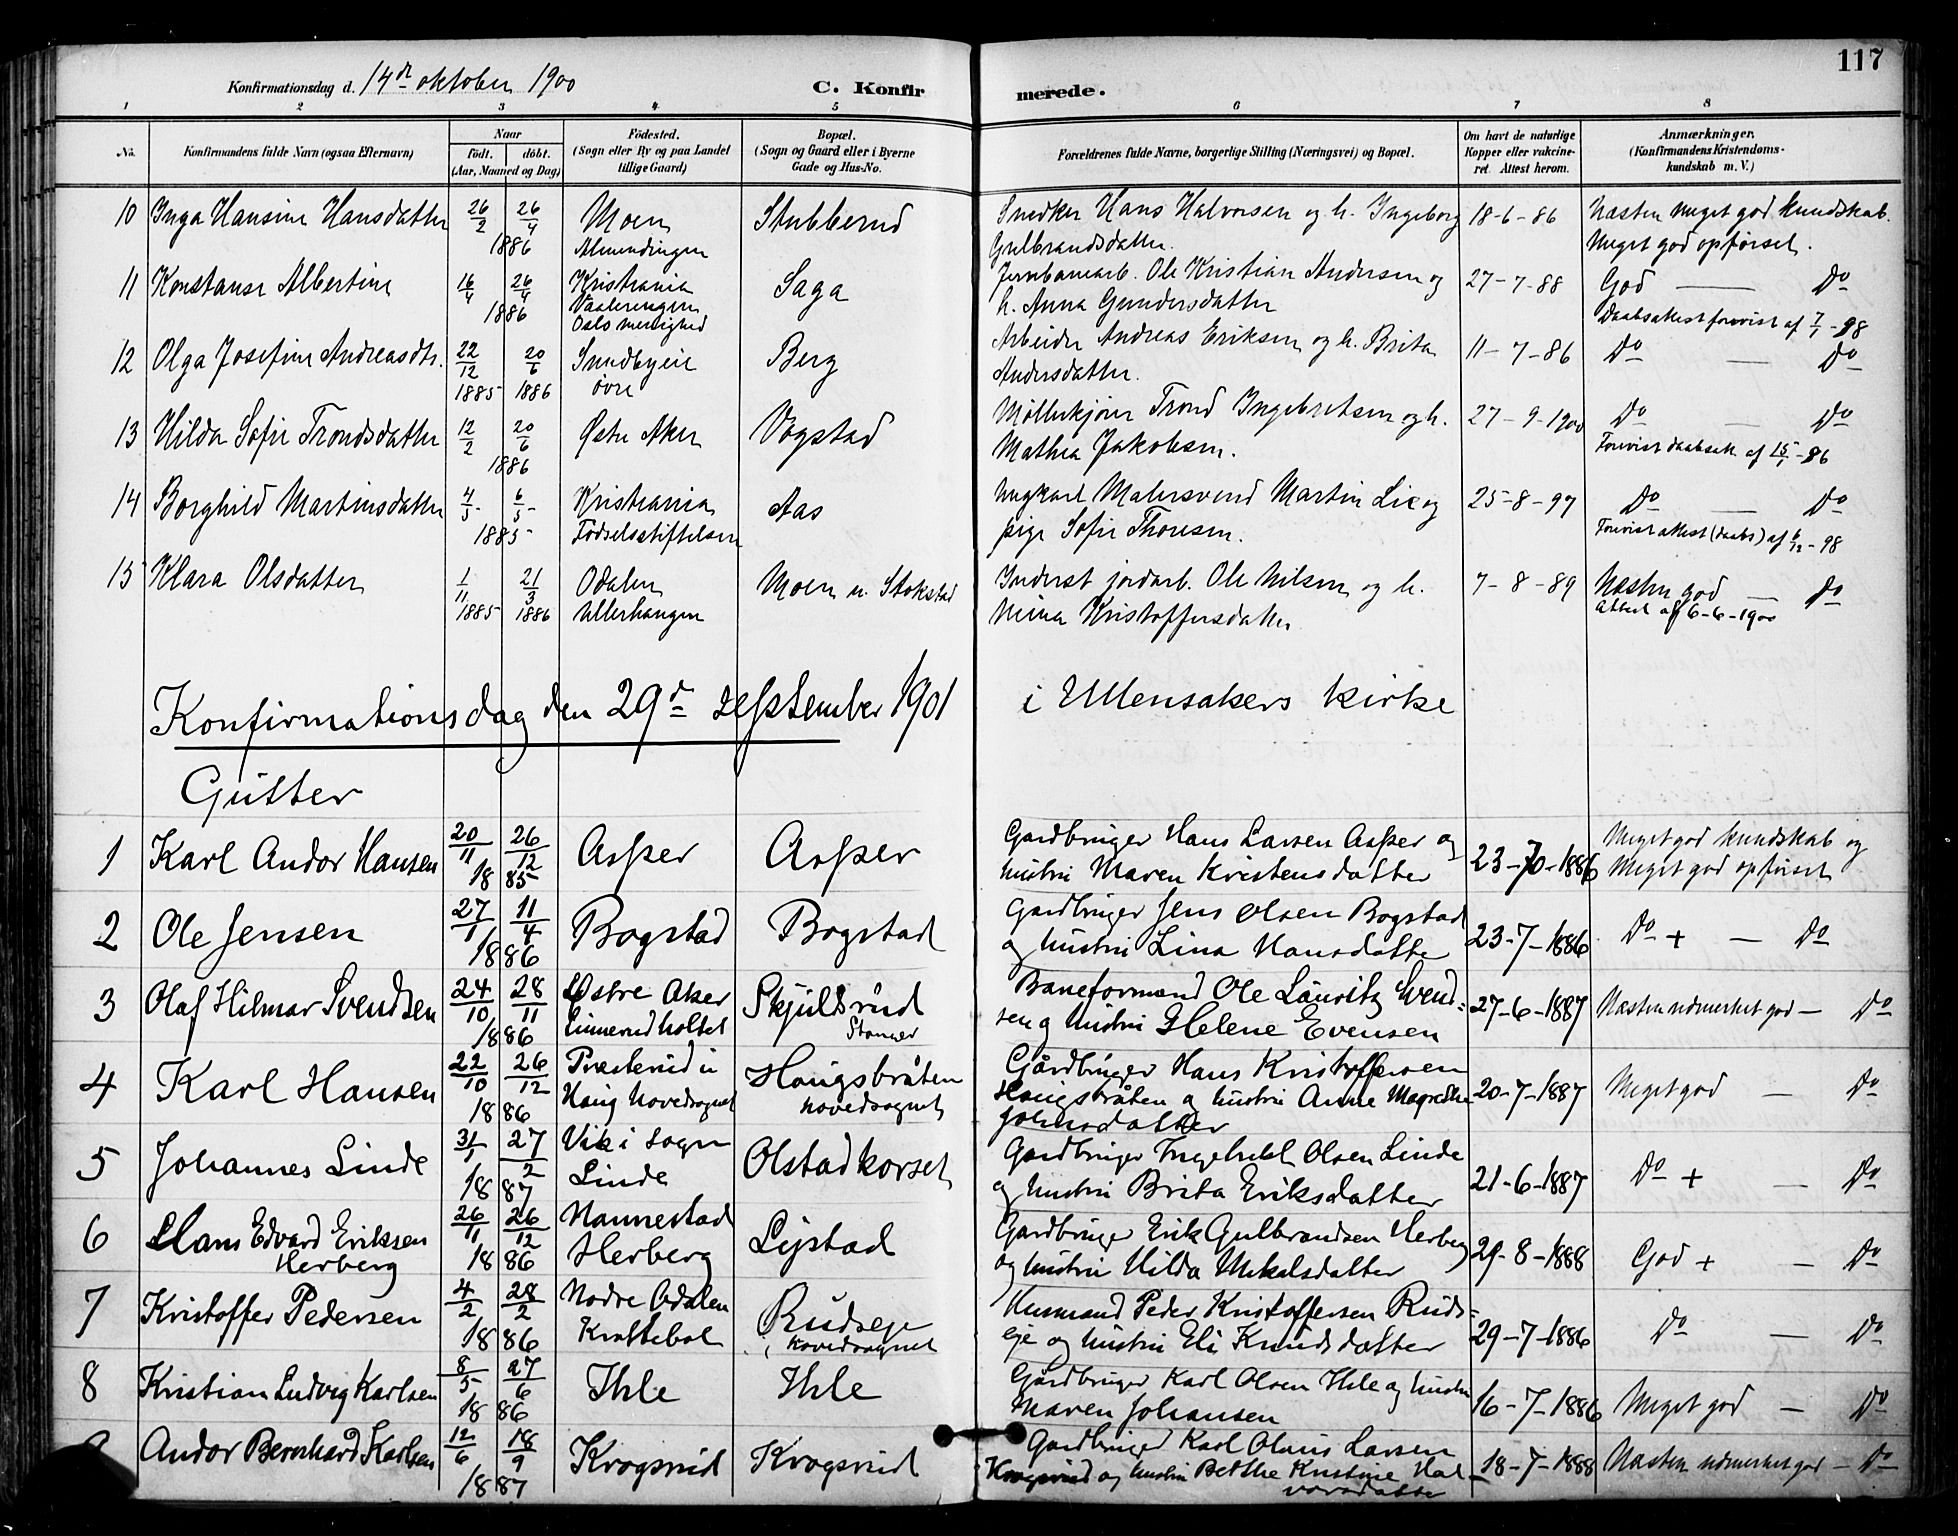 117
Konfirmationsdag d. 14de oktober 1900
C. Konfirmerede.
1 2 3 4 5 6 7 8
No. Konfirmandens fulde Navn (ogsaa Efternavn) Naar födt. döbt. (Aar, Maaned og Dag) Födested. (Sogn eller By og paa Landet tillige Gaard) Bopæl. (Sogn og Gaard eller i Byerne Gade og Hus-No. Forældrenes fulde Navne, borgerlige Stilling (Næringsvei) og Bopæl. Om havt de naturlige Kopper eller vakcineret. Attest herom. Anmærkninger. (Konfirmandens Kristendomskundskab m. V.)
10 Inga Hansine Hansdatter 26/2 26/4 1886 Moen Almendingen Stubberud Snedker Hans Halvorsen og h. Ingeborg Gulbrandsdatter. 18-6-86 Næsten meget god kundskab. Meget god opførsel.
11 Konstanse Albertine 16/4 26/4 1886 Kristiania Vaalerengen Oslo menighed Saga Jernbanearb. Ole Kristian Andersen og h. Anna Gundersdatter 27-7-88 God — Do Daabsattest forevist af 7/1-98
12 Olga Josefine Andreasdtr. 22/12 1885 20/6 1886 Sundbyeie övre Berg Arbeider Andreas Eriksen og h. Brita Andersdatter. 11-7-86 Do — Do
13 Hilda Sofie Trondsdatter 12/2 20/6 1886 Østre Aker Vogstad Møllerkjører Trond Ingebretsen og h. Mathea Jakobsen. 27-9-1900 Do — Do Forevist daabsatt. af 15/1-86
14 Borghild Martinsdatter 4/5 6/5 1885 Kristiania Fødselsstiftelsen Aas Ungkarl Malersvend Martin Lie og pige Sofie Thoresen. 25-8-97 Do — Do Forevist attest (daabs) af 6/12-98
15 Klara Olsdatter 1/11 1885 21/3 1886 Odalen Ullerhaugen Moen u. Stokstad Inderst jordarb. Ole Nilsen og h. Nina Kristoffersdatter 7-8-89 Næsten god — Do Attest af 6-6-1900
Konfirmationsdag den 29de september 1901 i Ullensakers kirke
Gutter
1 Karl Andor Hansen 20/11 26/12 1885 Asper Asper Gardbruger Hans Larsen Asper og hustru Maren Kristensdatter 23-70-1886 Meget god kundskab og Meget god opførsel
2 Ole Jensen 27/1 11/4 1886 Bogstad Bogstad Gardbruger Jens Olsen Bogstad og hustru Lina Hansdatter 23-7-1886 Do + — Do
3 Olaf Hilmar Svendsen 24/10 28/11 1886 Østre Aker Linnerudholtet Skjulsrud Stanger Baneformand Ole Lauritz Svendsen og hustru Helene Evensen 27-6-1887 Næsten udmerket god — Do
4 Karl Hansen 22/10 26/12 1886 Præsterud u Haug Hovedsognet Haugsbråten hovedsognet Gårdbruger Hans Kristoffersen Haugsbråten og hustru Anne Magrethe Johnsdatter 20-7-1887 Meget god — Do
5 Johannes Linde 31/1 27/2 1887 Vik i Sogn Linde Olstadkorset Gardbruger Ingebrikt Olsen Linde og hustru Brita Eriksdatter 21-6-1887 Do + — Do
6 Hans Edvard Eriksen Herberg 26/11 26/12 1886 Nannestad Herberg Lystad Gardbruger Erik Gulbrandsen Herberg og hustru Hilda Mikalsdatter 29-8-1888 God + — Do
7 Kristoffer Pedersen 4/2 28/2 1886 Nordre Odalen Krattebøl Rudseje i hovedsognet Husmand Peder Kristoffersen Rudseje og hustru Eli Knudsdatter 29-7-1886 Do — Do
8 Kristian Ludvig Karlsen 8/5 27/6 1886 Ihle Ihle Gårdbruger Karl Olsen Ihle og hustru Maren Johansen 16-7-1886 Meget god — Do
Andor Bernhard Karlsen 12/6 18/9 1887 Krogsrud Krogsrud Gardbruger Karl Olaus Larsen Krogsrud og hustru Berthe Kristine Halvorsdatter 18-7-1888 Næsten udmerket god — Do